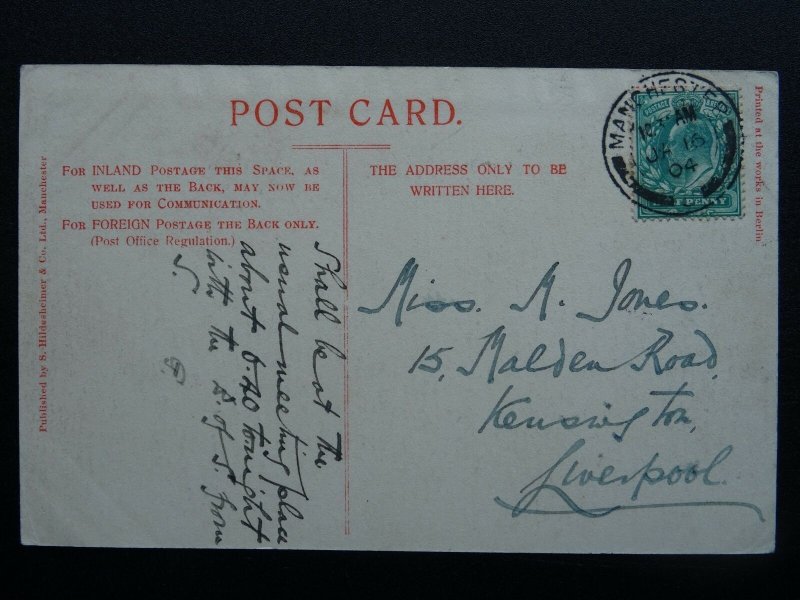 POST CARD.
FOR INLAND POSTAGE THIS SPACE, AS
WELL AS THE BACK, MAY NOW BE
USED FOR COMMUNICATION.
FOR FOREIGN POSTAGE THE BACK ONLY.
(Post Office Regulation.)
THE ADDRESS ONLY TO BE
WRITTEN HERE.
Published by S. Hildesheimer & Co. Ltd., Manchester
Printed at the works in Berlin
MANCHESTER
AM
JA 16
04
POSTAGE
PENNY
Shall be at the
usual meeting place
about 6.40 tonight
with the D. of S. from
S.
Miss. M. Jones.
15, Malden Road,
Kensington,
Liverpool.